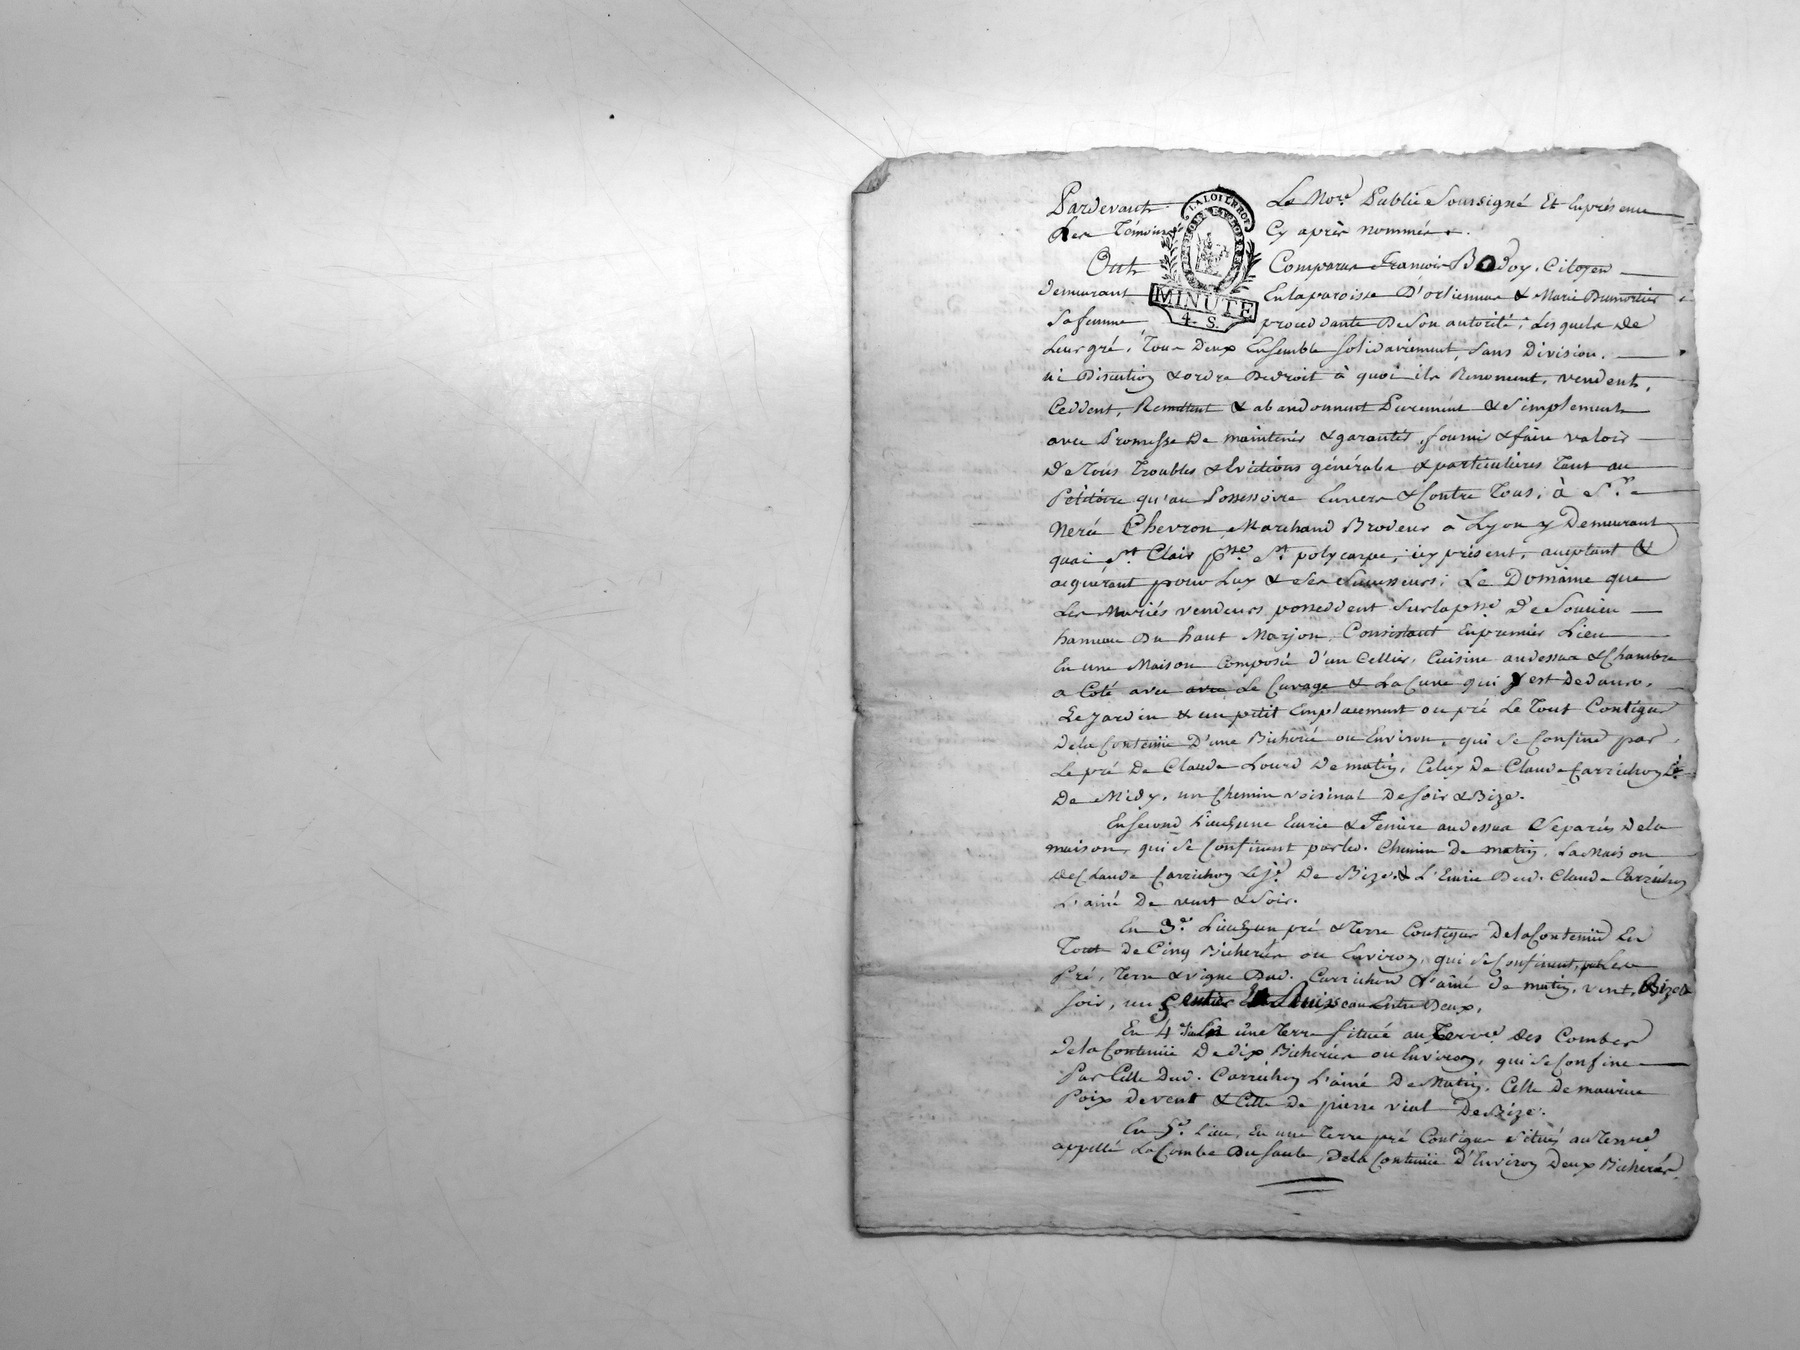 Pardevant Le No.re Public Soussigné Et En présence
Des Témoins Cy après nommés.
LA LOI LE ROI
MINUTE
4. S.
Ont Comparus François Badoy, Citoyen
demeurant En la paroisse D'orliennas & Marie Dumortier
Sa femme procedante De Son autorité; Lesquels de
Leur gré, Tous Deux Ensemble Solidairement, Sans Division,
ni Discution & ordre De droit à quoi ils Renoncent, vendent,
Ceddent, Remettent & abandonnent Purement & Simplement
avec Promesse De maintenir & garantir, fournir & faire valoir
De Tous Troubles & Evictions générales & particulieres Tant au
Pétitoire qu'au Possessoire Envers & Contre Tous, à S.r
Nerá Chevron, Marchand Brodeur à Lyon y Demeurant
quai St. Clair p.sse St. polycarpe, icy présent, acceptant &
acquérant pour Luy & Ses Successeurs; Le Domaine que
Les Mariés vendeurs possedent Sur la p.sse De Soucieu
hameau Du haut Marjon. Consistant En premier Lieu
En une Maison Composé d'un Cellier, Cuisine au dessus & Chambre
a Coté avec avec Le Cuvage & La Cuve qui y est Dedans,
Le Jardin & un petit Emplacement ou pré Le Tout Contigus
De la Contenüe D'une Bicherée ou Environ, qui Se Confine par
Le pré De Claude Lourd De matin, Celuy De Claude Carrichon
De Midy, un Chemin voisinal De Soir & Bize.
En Second Lieu, une Ecurie & Feniere au dessus Separés De la
maison, qui Se Confinent par led. Chemin De matin, La Maison
De Claude Carrichon Le J.e De Bize & L'Ecurie Dud. Claude Carrichon
L'ainé De vent & Soir.
En 3.e Lieu, un pré & Terre Contigus De la Contenüe En
Tout de Cinq Bicherées ou Environ, qui Se Confinent par Les
Pré, Terre & vigne Dud. Carrichon L'ainé De matin, vent, Bize &
Soir, un Sentier & Ruisseau Entre Deux.
En 4 Lieu une Terre Située au Terr.e Des Combes
de la Contenüe De dix Bicherées ou Environ, qui Se Confine
Par Celle Dud. Carrichon L'ainé De Matin, Celle De maurice
Poix De vent & Celle De pierre vial De Bize.
En 5.e Lieu, En une Terre pré Contigus Situés au Terr.e
appellé La Combe Du Saule, De la Contenüe D'Environ Deux Bicherées,